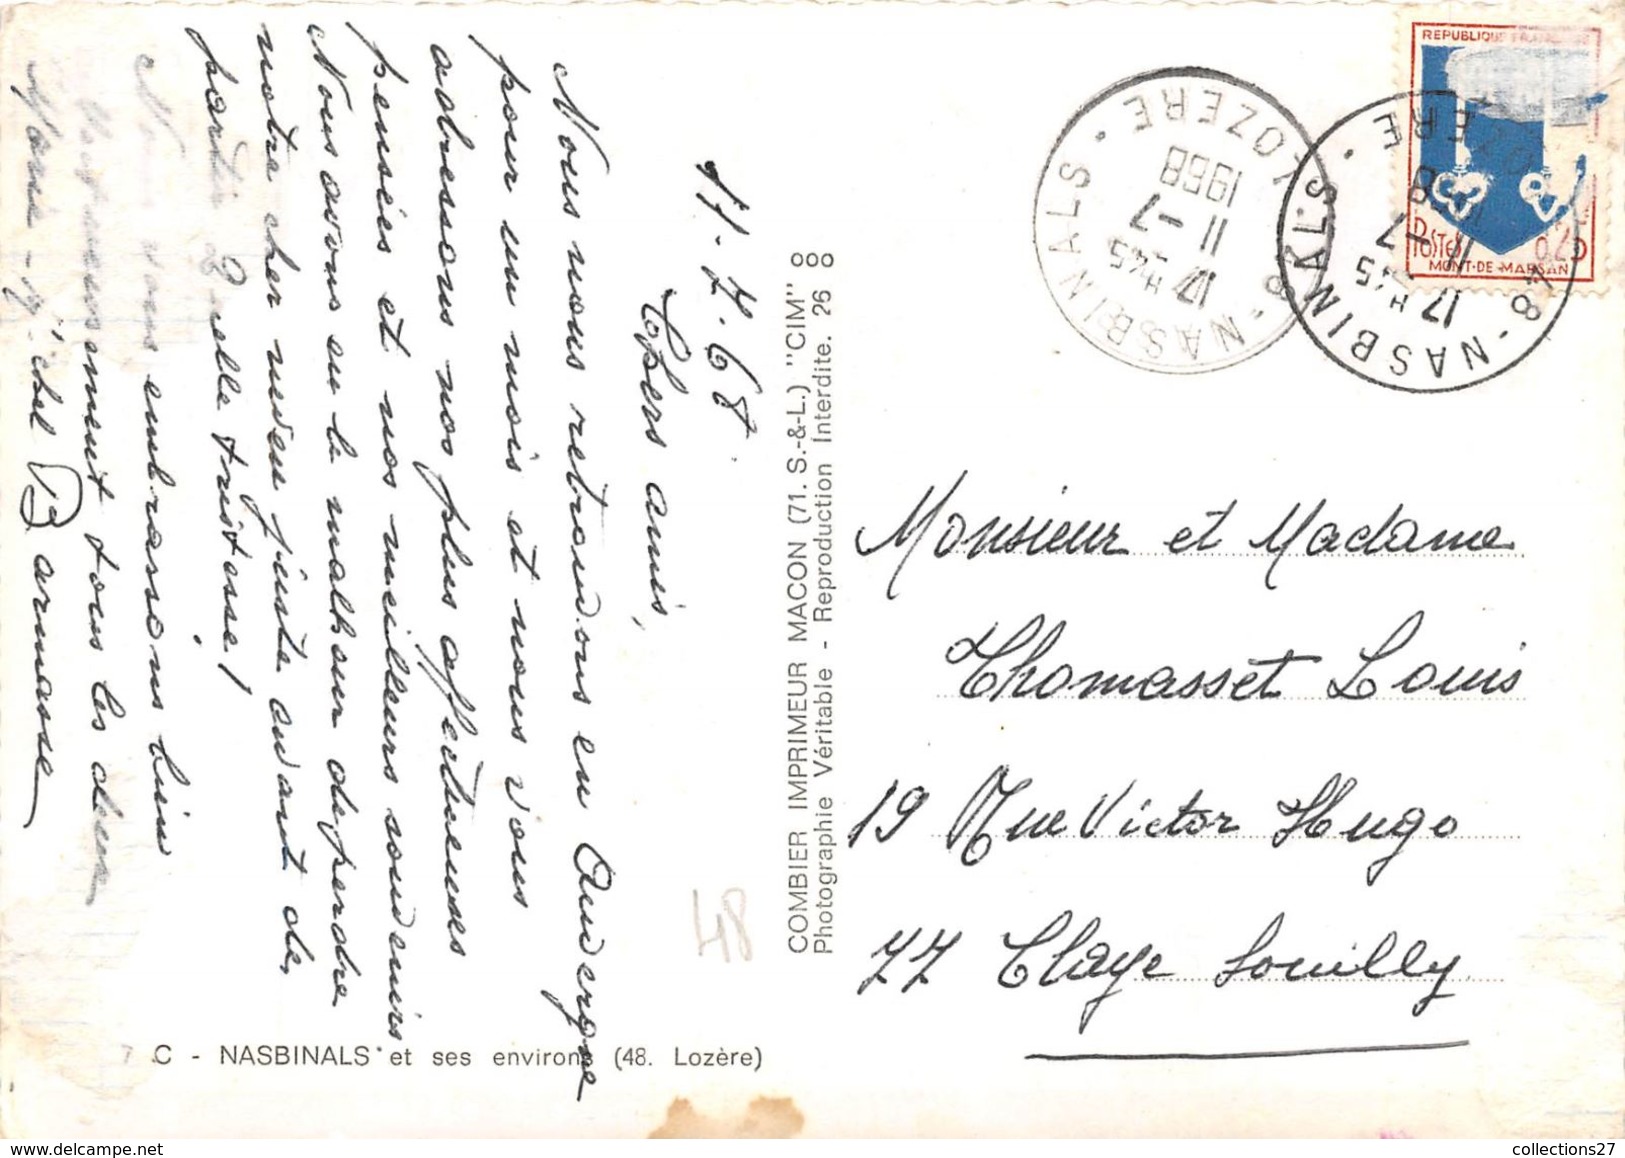 11.7.68
Chers amis,
Nous nous retrouvons en Auvergne
pour un mois et nous vous
adressons nos plus affectueuses
pensées et nos meilleurs souvenirs
Nous avons eu le malheur de perdre
notre cher neveu juste avant de
partir Quelle tristesse!
Nous vous embrassons bien
affectueusement tous les deux
Marie - Michel Barmasse
COMBIER IMPRIMEUR MACON (71. S.-&-L.) "CIM"
Photographie Véritable - Reproduction Interdite. 26
7 C - NASBINALS et ses environs (48. Lozère)
48
48 - NASBINALS · LOZERE ·
17 H 45
11 - 7
1968
48 - NASBINALS ·
17 H 45
11 - 7
REPUBLIQUE FRANCAISE
POSTES
0,25
MONT-DE-MARSAN
Monsieur et Madame
Thomasset Louis
19 Rue Victor Hugo
77 Claye Souilly
collections27